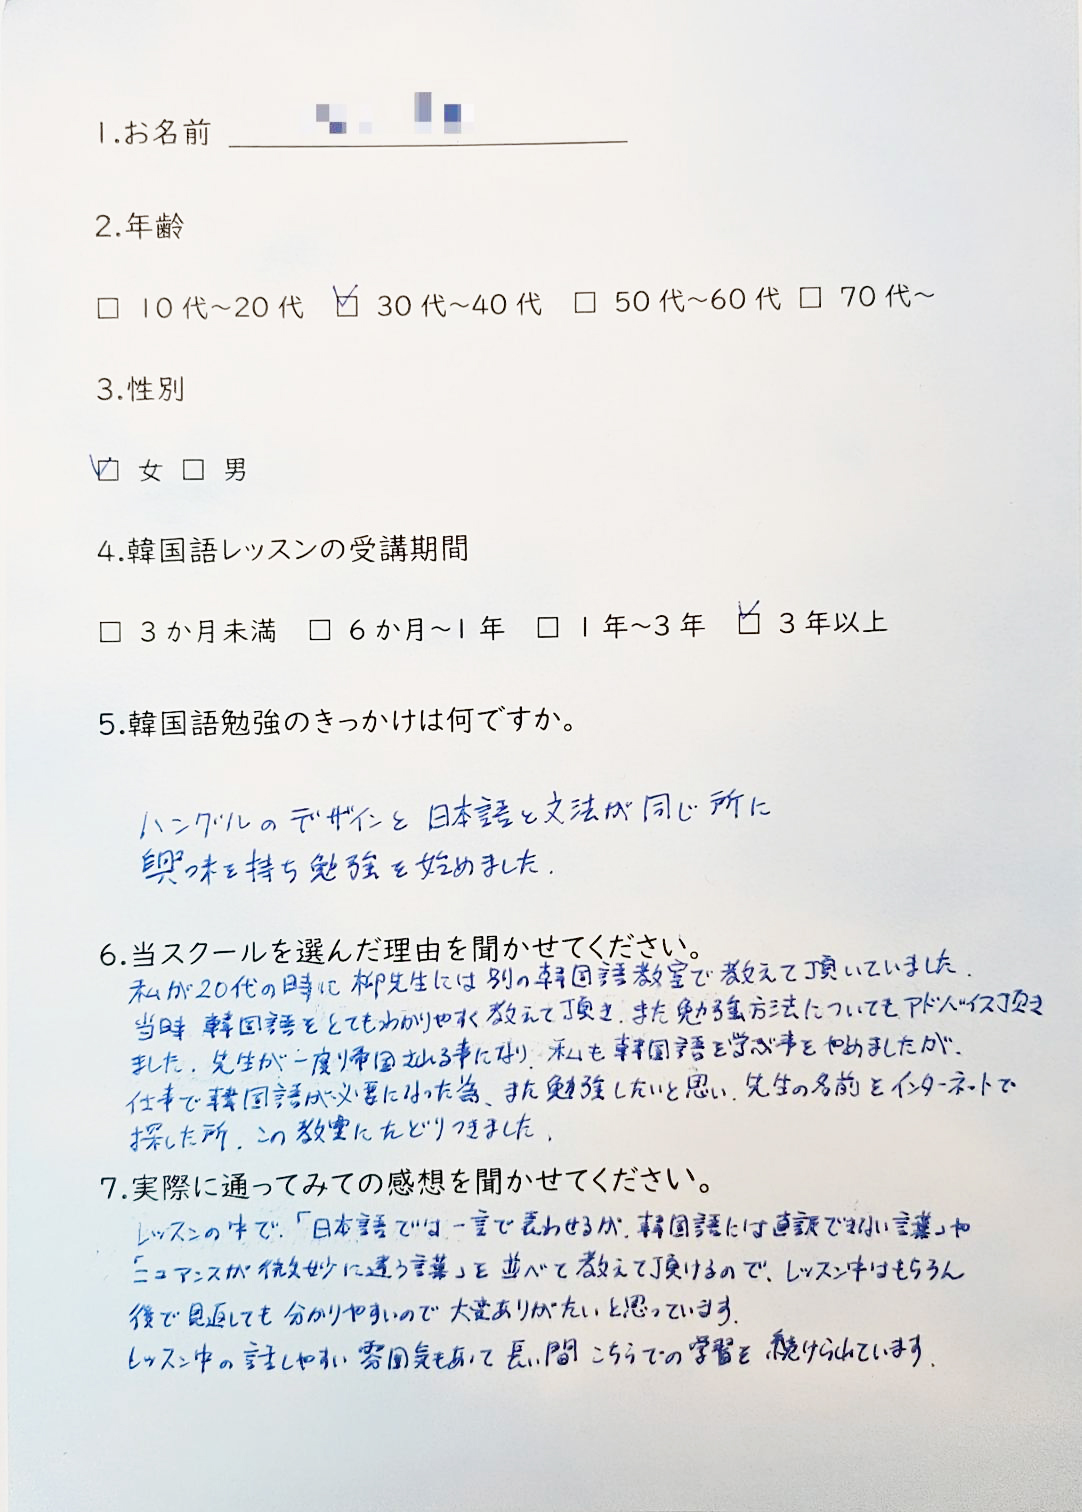 1.お名前
2.年齢
□ 10代～20代 ☑ 30代～40代 □ 50代～60代 □ 70代～
3.性別
☑ 女 □ 男
4.韓国語レッスンの受講期間
□ 3か月未満 □ 6か月～1年 □ 1年～3年 ☑ 3年以上
5.韓国語勉強のきっかけは何ですか。
ハングルのデザインと日本語と文法が同じ所に
興味を持ち勉強を始めました.
6.当スクールを選んだ理由を聞かせてください。
私が20代の時に柳先生には別の韓国語教室で教えて頂いていました.
当時韓国語をとてもわかりやすく教えて頂き、また勉強方法についてもアドバイス頂き
ました. 先生が一度帰国される事になり、私も韓国語を学ぶ事をやめましたが、
仕事で韓国語が必要になった為、また勉強したいと思い、先生の名前をインターネットで
探した所、この教室にたどりつきました.
7.実際に通ってみての感想を聞かせてください。
レッスンの中で、「日本語では一言で表わせるが、韓国語には直訳できない言葉」や
「ニュアンスが微妙に違う言葉」を並べて教えて頂けるので、レッスン中はもちろん
後で見返しても分かりやすいので大変ありがたいと思っています.
レッスン中の話しやすい雰囲気もあって長い間こちらでの学習を続けられています.